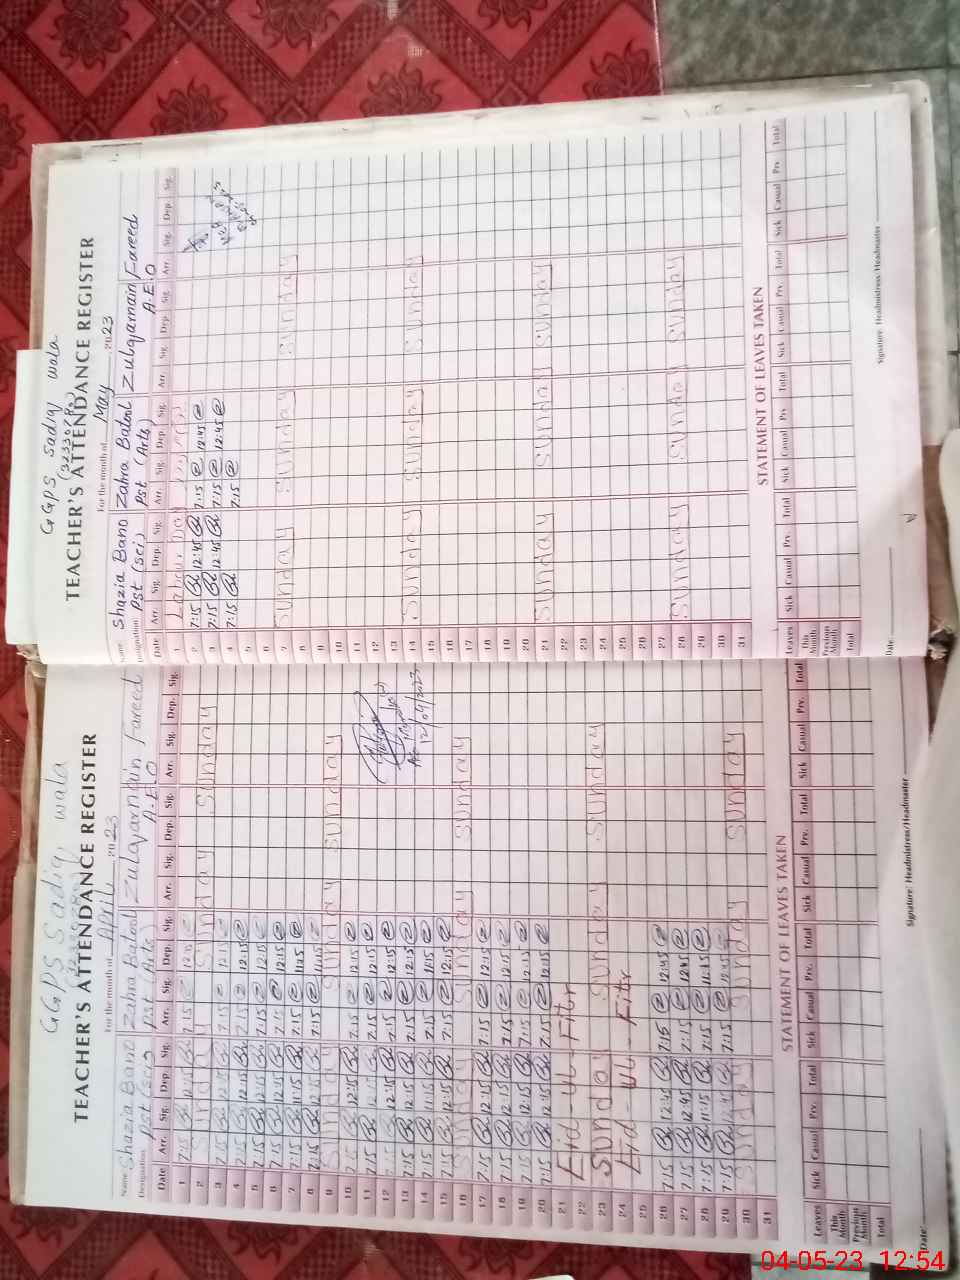 GGPS Sadiq wala
TEACHER'S ATTENDANCE REGISTER
For the month of April 2023
Name Shazia Bano Zahra Batool Zulqarnain Fareed
Designation Pst (sci) Pst (Arts) A.E.O
Date Arr. Sig. Dep. Sig. Arr. Sig. Dep. Sig. Arr. Sig. Dep. Sig. Arr. Sig. Dep. Sig.
1 7:15 12:15 7:15 12:15
2 Sunday Sunday Sunday
3 7:15 12:15 7:15 12:15
4 7:15 12:15 7:15 12:15
5 7:15 12:15 7:15 12:15
6 7:15 12:15 7:15 12:15
7 7:15 11:15 7:15 11:15
8 7:15 12:15 7:15
9 Sunday Sunday Sunday
10 7:15 12:15 7:15 12:15
11 7:15 12:15 7:15 12:15
12 7:15 12:15 7:15 12:15
13 7:15 12:15 7:15 12:15
12/04/2023
14 7:15 11:15 7:15 11:15
15 7:15 12:15 7:15 12:15
16 Sunday Sunday Sunday
17 7:15 12:15 7:15 12:15
18 7:15 12:15 7:15 12:15
19 7:15 12:15 7:15 12:15
20 7:15 12:45 7:15 12:15
21 Eid-Ul-Fitr
22
23 Sunday Sunday Sunday
24 Eid-Ul-Fitr
25
26 7:15 12:45 7:15 12:45
27 7:15 12:45 7:15 12:45
28 7:15 11:15 7:15 11:15
29 7:15 12:45 7:15 12:45
30 Sunday Sunday Sunday
31
STATEMENT OF LEAVES TAKEN
Leaves Sick Casual Prv. Total Sick Casual Prv. Total Sick Casual Prv. Total Sick Casual Prv. Total
This Month
Previous Month
Total
Date: Signature: Headmistress/Headmaster
GGPS Sadiq wala
TEACHER'S ATTENDANCE REGISTER
For the month of May 2023
Name Shazia Bano Zahra Batool Zulqarnain Fareed
Designation Pst (sci) Pst (Arts) A.E.O
Date Arr. Sig. Dep. Sig. Arr. Sig. Dep. Sig. Arr. Sig. Dep. Sig. Arr. Sig. Dep. Sig.
1 Labour Day
2 7:15 12:45 7:15 12:45
3 7:15 12:45 7:15 12:45
4 7:15 7:15
5
6
7 Sunday Sunday Sunday
8
9
10
11
12
13
14 Sunday Sunday Sunday
15
16
17
18
19
20
21 Sunday Sunday Sunday
22
23
24
25
26
27
28 Sunday Sunday Sunday
29
30
31
STATEMENT OF LEAVES TAKEN
Leaves Sick Casual Prv. Total Sick Casual Prv. Total Sick Casual Prv. Total Sick Casual Prv. Total
This Month
Previous Month
Total
Date: Signature: Headmistress/Headmaster
04-05-23 12:54